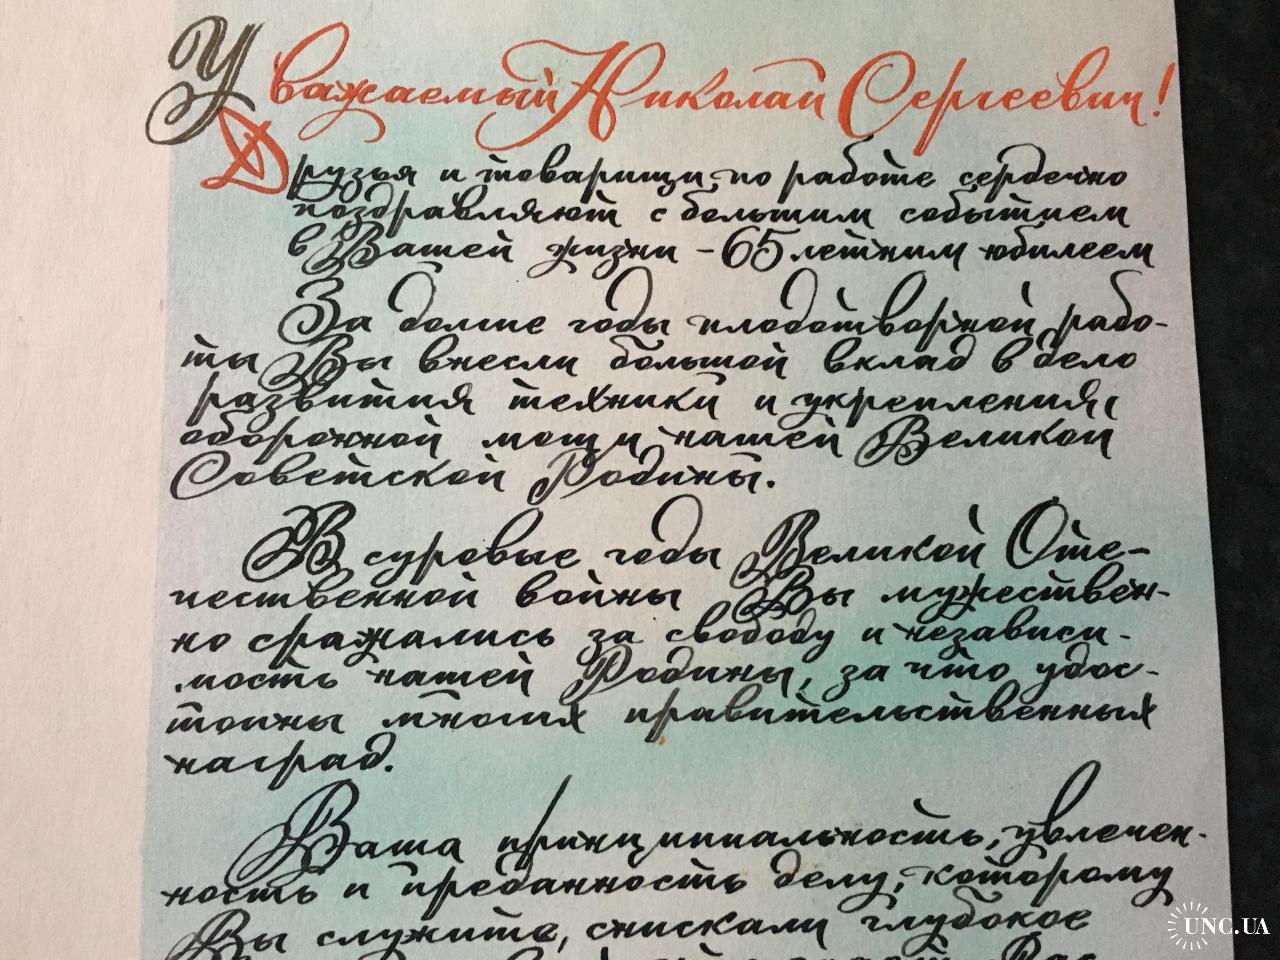 Уважаемый Николай Сергеевич!
Друзья и товарищи по работе сердечно
поздравляют с большим событием
в Вашей жизни - 65 летним юбилеем
За долгие годы плодотворной рабо-
ты Вы внесли большой вклад в дело
развития техники и укрепления
оборонной мощи нашей Великой
Советской Родины.
В суровые годы Великой Оте-
чественной войны Вы мужествен-
но сражались за свободу и независи-
мость нашей Родины, за что удос-
тоины многих правительственных
наград.
Ваша принципиальность, увлечен-
ность и преданность делу, которому
Вы служите, снискали глубокое
UNC.UA